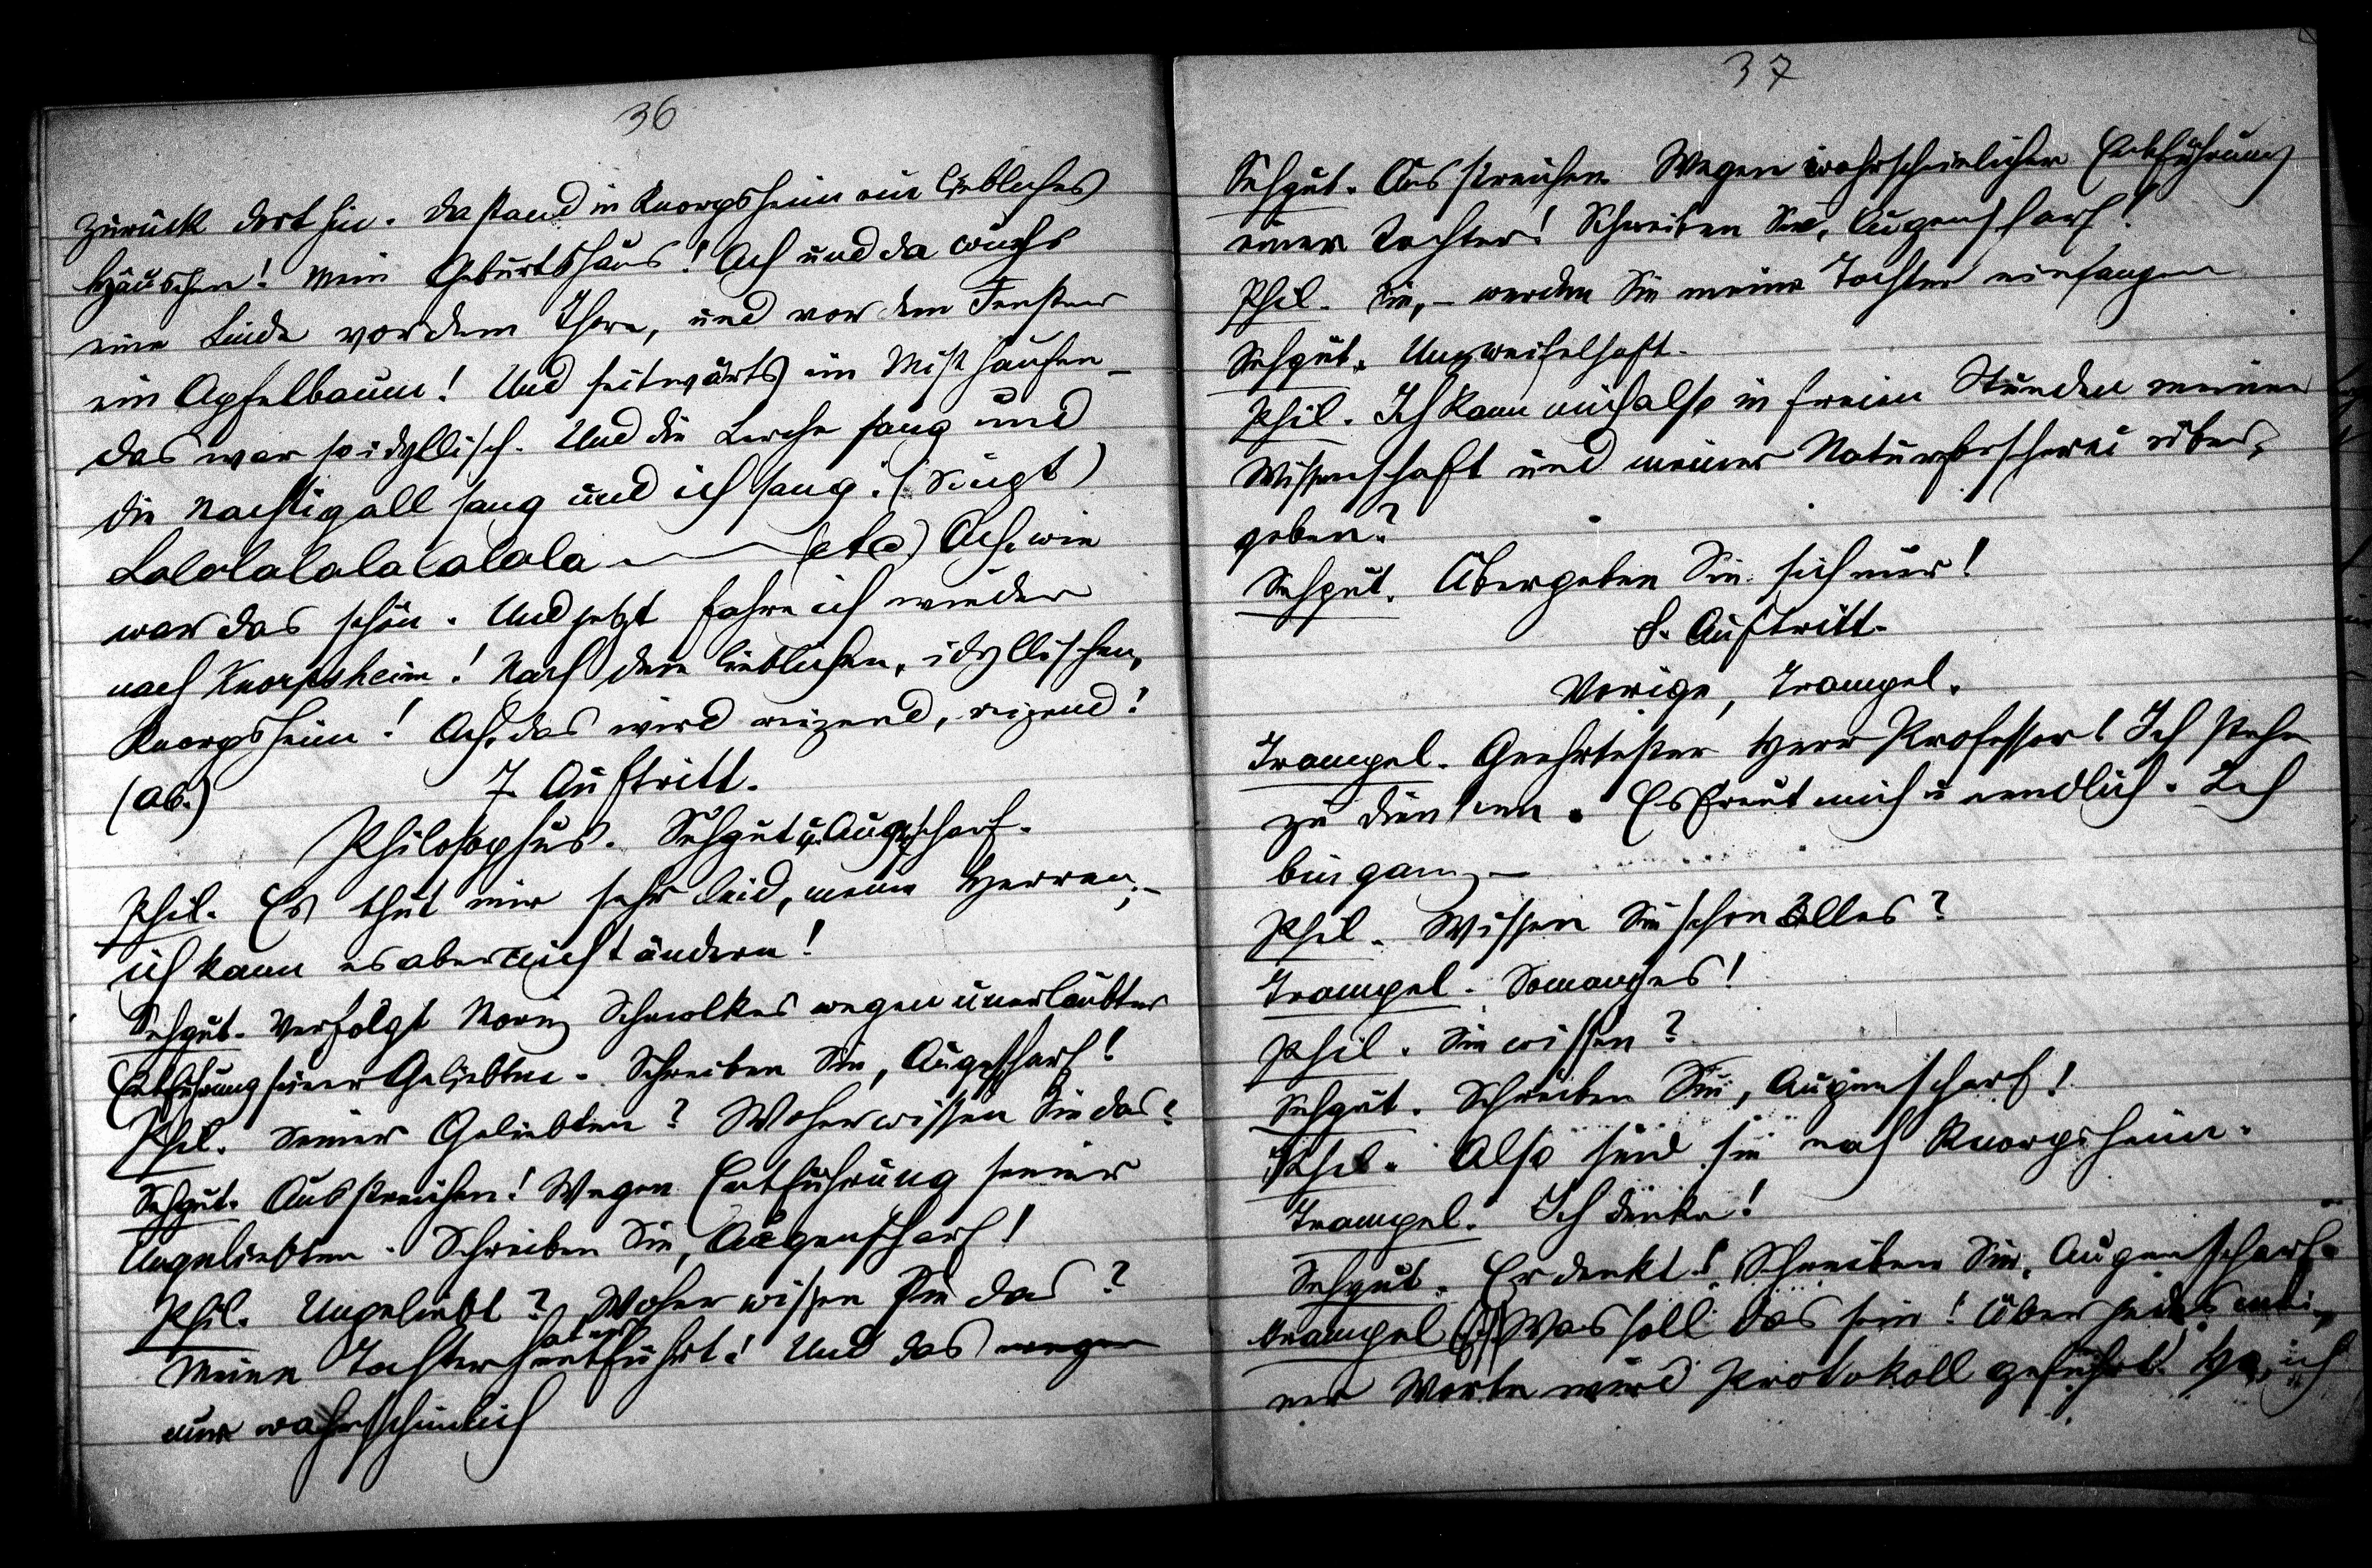 36
zurück dorthin. Da stand in Knorpsheim ein liebliches
Häuschen! Mein Geburtshaus! Ach und da wuchs
eine Linde vor dem Thore, und vor dem Fenster
ein Apfelbaum! Und seitwärts ein Misthaufen –
das war so idyllisch. Und die Lerche sang und
die Nachtigall sang und ich sang: (Singt)
Lalalalalalalalala (etc) Ach, wie
war das schön. Und jetzt fahre ich wieder
nach Knorpsheim! Nach dem lieblichen, idyllischen,
Knorpsheim! Ach, das wird reizend, reizend!
(ab.) 7. Auftritt.
Philosophus. Sehgut u. Augenscharf.
Phil. Es thut mir sehr leid, meine Herren, –
ich kann es aber nicht ändern!
Sehgut. Verfolgt Moriz Schmolkes wegen unerlaubter
Entführung seiner Geliebten. Schreiben Sie, Augenscharf!
Phil. Seiner Geliebten? Woher wissen Sie das?
Sehgut. Ausstreichen! Wegen Entführung seiner
Ungeliebten. Schreiben Sie, Augenscharf!
Phil. Ungeliebt? Woher wissen Sie das?
Meine Tochter hat er entführt! Und das wegen
nur wahrscheinlich
37
Sehgut. Ausstreichen. Wegen wahrscheinlicher Entführung
einer Tochter! Schreiben Sie, Augenscharf!
Phil. Sie, – werden Sie meine Tochter einfangen
Sehgut. Unzweifelhaft.
Phil. Ich kann mich also in freien Stunden meiner
Wissenschaft und meiner Naturforscherei über-
geben?
Sehgut. Übergeben Sie sich nur!
8. Auftritt.
Vorige, Trampel.
Trampel. Geehrtester Herr Professor! Ich stehe
zu diensten. Es freut mich unendlich. Ich
bin ganz –
Phil. Wissen Sie schon Alles?
Trampel. So manches!
Phil. Sie wissen?
Sehgut. Schreiben Sie, Augenscharf!
Phil. Also sind sie nach Knorpsheim.
Trampel. Ich denke!
Sehgut. Er denkt! Schreiben Sie, Augenscharf.
Trampel Was soll das sein! Über jedes mei-
ner Worte wird Protokoll geführt. Ha, ich